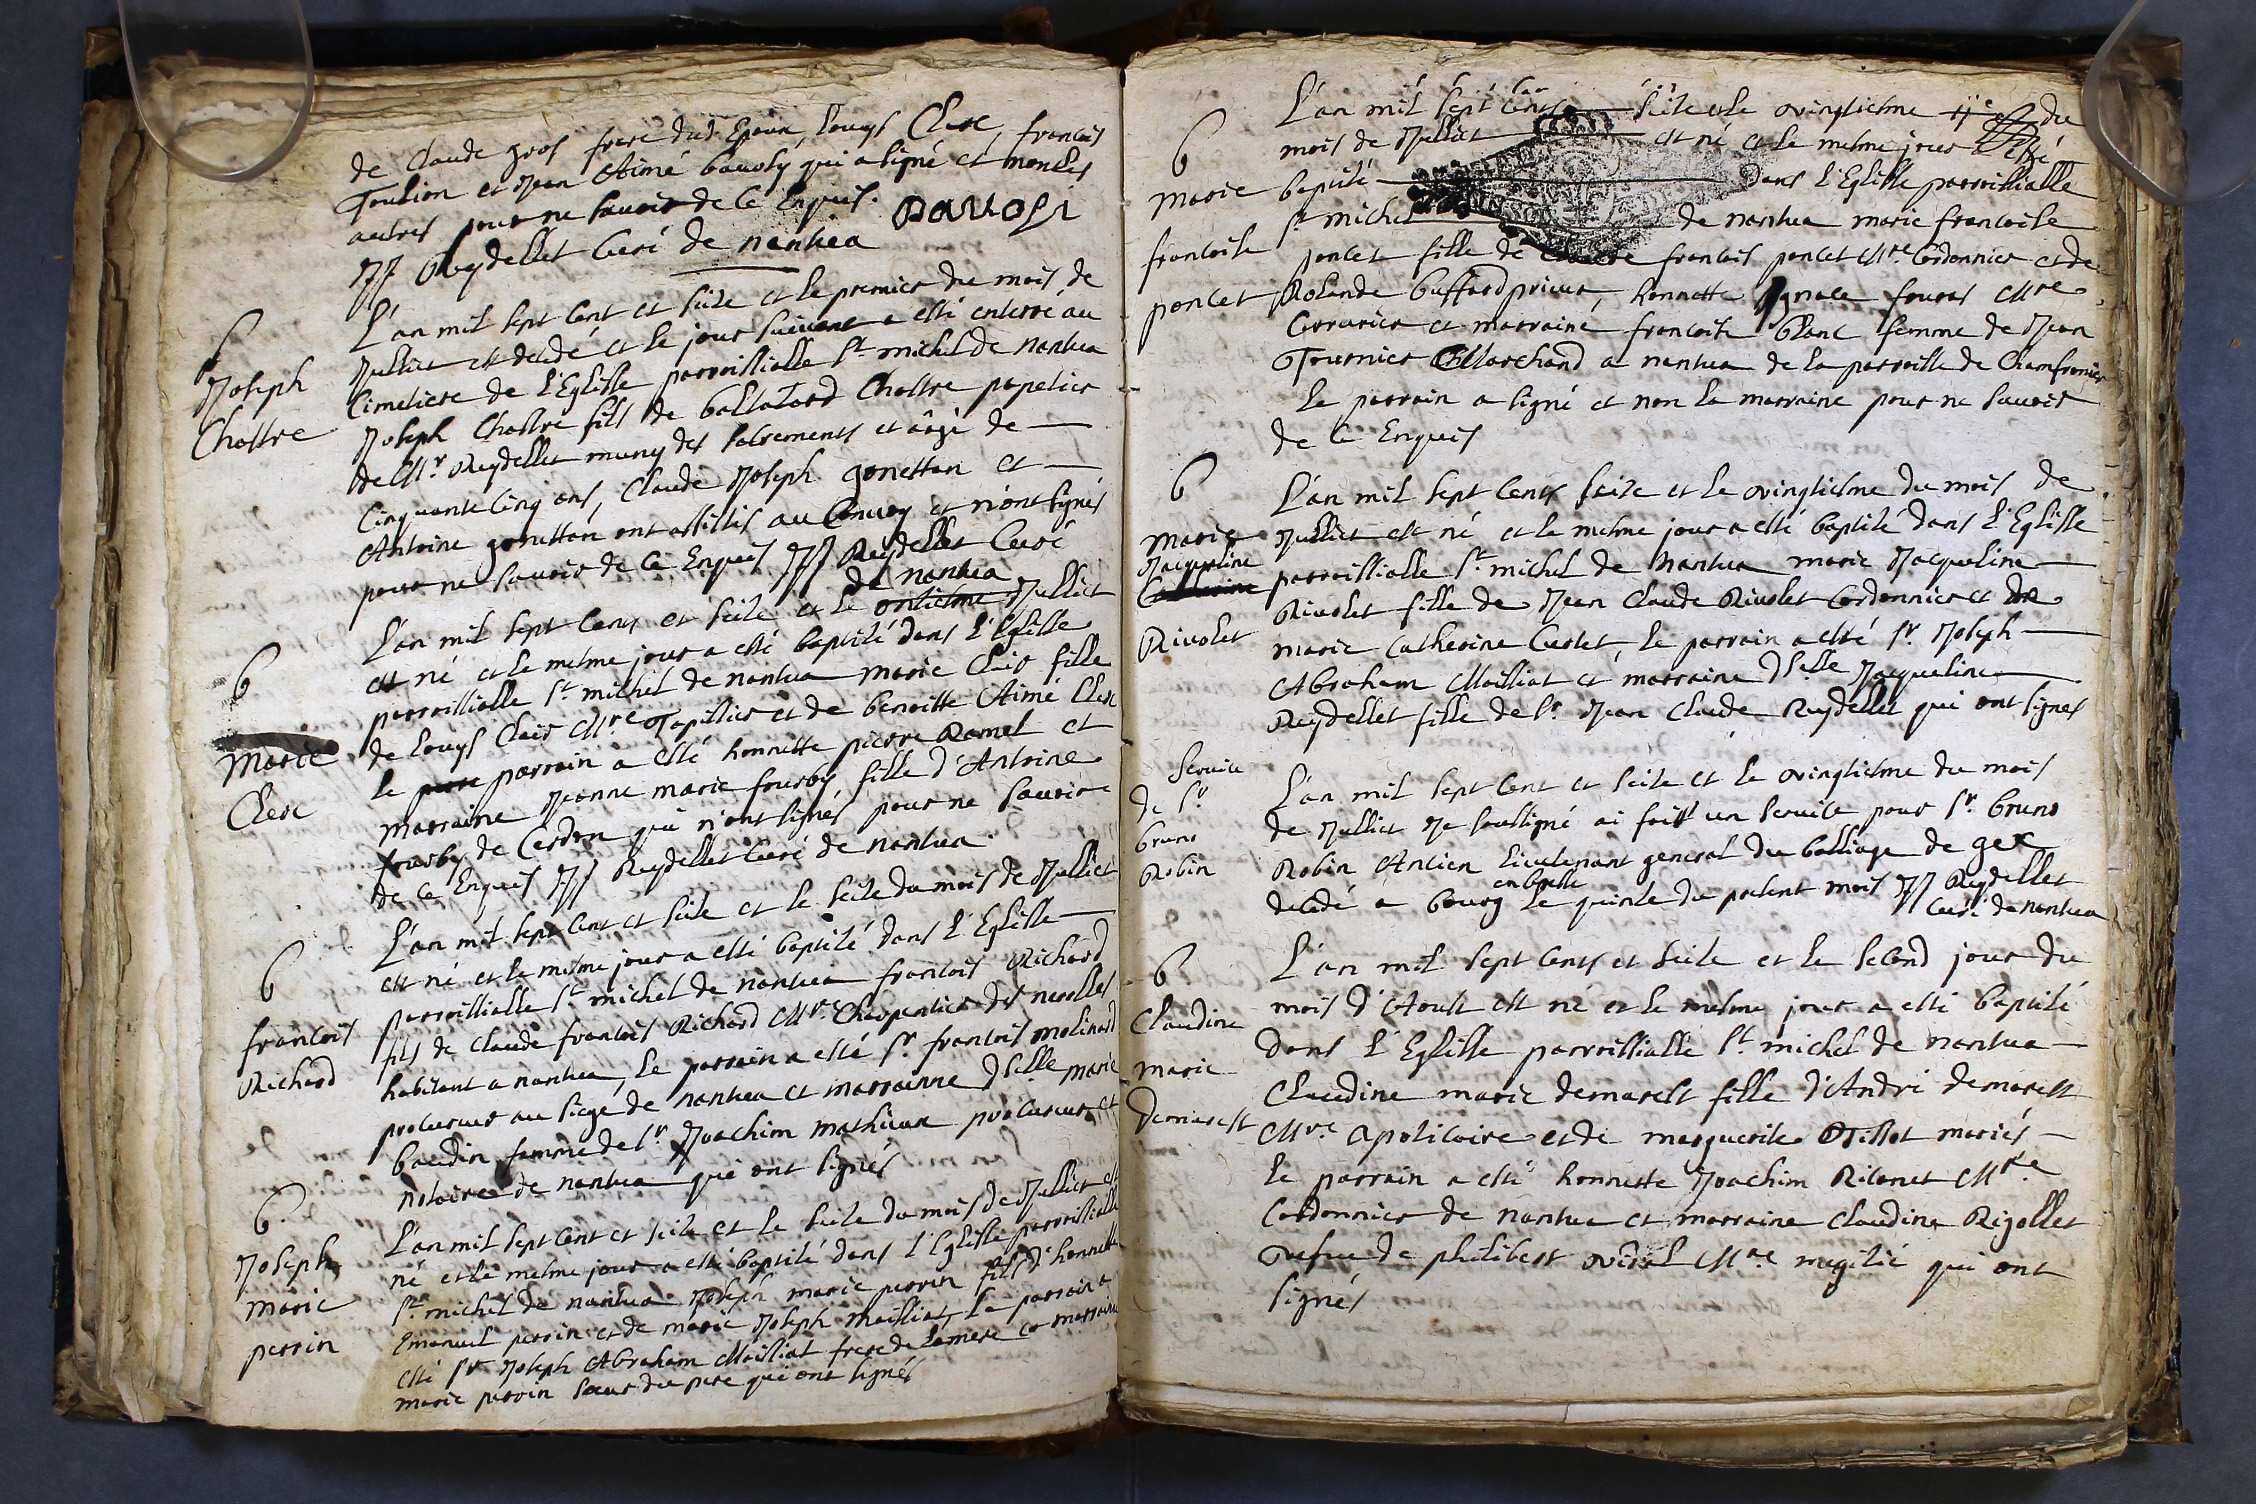 de Claude gros frere dud Epoux, Louys Clerc, francois
Toubion et Jean Aimé bavosy qui a signé et non les
autres pour ne savoir de ce Enquis. Bavosi
JJ Reydellet Curé de nantua
6
Joseph
Chastre
L'an mil sept Cent et seize et le premier du mois de
Juillet est decedé et le jour suivant a esté enterré au
Cimetiere de l'Eglisse parroissialle St michel de nantua
Joseph Chastre fils de baltasard Chastre papetier
de Mr. Reydellet muny des sacrements et âgé de
Cinquante cinq ans, Claude Joseph gonettan et
Antoine gonettan ont assistés au Convoy et n'ont signés
pour ne savoir de ce Enquis JJ Reydellet Curé
de nantua
6
Marie
Clerc
L'an mil sept Cens et seize et le onziesme Juillet
est né et le mesme jour a esté baptisé dans l'Eglisse
parroissialle St michel de nantua marie Clerc fille
de Louys Clerc Mre Tapissier et de benoitte Aimé Clerc
le parrain a esté honnette pierre Ramel et
marraine Jeanne marie fourby fille d'Antoine
fourby de Cerdon qui n'ont signés pour ne savoir
de ce Enquis JJ Reydellet Curé de nantua
6
francois
Richard
L'an mil sept Cent et seize et le seize du mois de Juillet
est né et le mesme jour a esté baptisé dans l'Eglisse
parroissialle St michel de nantua francois Richard
fils de Claude francois Richard Mre Charpentier des nerolles
habitant a nantua, Le parrain a esté Sr. francois molinard
procureur au siege de nantua et marrainne dslle marie
baudin femme de Sr. Joachim mathieux procureur et
notaire de nantua qui ont signés
6
Joseph
marie
perrin
L'an mil sept Cent et seize et le seize du mois de Juillet est
né et le mesme jour a esté baptisé dans l'Eglisse parroissialle
St michel de nantua Joseph marie perrin fils d'honnette
Emanuel perrin et de marie Joseph mailliat, Le parrain a
esté Sr Joseph Abraham Mailliat frere de la mere et marraine
marie perrin sœur du pere qui ont signés
6
marie
francoise
poncet
L'an mil sept cens seize et le vingtiesme du
mois de Juillet est né et le mesme jour a esté
baptisé dans l'Eglisse parroissialle
St michel de nantua marie francoise
poncet fille de francois poncet Mre. Cordonnier et de
Rolande buffard prieur, honnette Ignace fouras Mre
Corrurier et marraine francoise blanc femme de Jean
Tournier Marchand a nantua de la parroisse de Chamfromier
Le parrain a signé et non la marraine pour ne savoir
de ce Enquis
6
Marie
Jacqueline
Rivolet
L'an mil sept Cents seize et Le vingtiesme du mois de
Juillet est né et le mesme jour a esté baptisé dans l'Eglisse
parroissialle St michel de Nantua marie Jacqueline
Rivolet fille de Jean Claude Rivolet Cordonnier et de
marie Catherine Curtet, le parrain a esté Sr. Joseph
Abraham Mailliat et marraine dslle Jacqueline
Reydellet fille de Sr. Jean Claude Reydellet qui ont signés
Service
de Sr
bruno
Robin
L'an mil sept Cent et seize et le vingtiesme du mois
de Juillet Je soussigné ai fait un service pour Sr. bruno
Robin Ancien Lieutenant general du balliage de gex
decedé a bourg en bresse Le quinze du present mois JJ Reydellet
Curé de nantua
6
Claudine
marie
demarest
L'an mil sept Cents et seize et le second jour du
mois d'Aoust est né et le mesme jour a esté baptisé
dans l'Eglisse parroissialle St michel de nantua
Claudine marie demarest fille d'André demarest
Mre. Apoticaire et de marguerite Tissot mariés
Le parrain a esté honnette Joachim Ritonet Mre
Cordonnier de nantua et marraine Claudine Rigollet
vefve de philibert vidal Mre megitié qui ont
signés